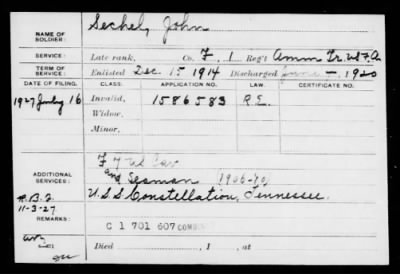 NAME OF SOLDIER: Sechel, John
SERVICE: Late rank, Co. F, 1 Reg't Amm Tr. US F.A.
TERM OF SERVICE: Enlisted Dec. 15 1914 Discharged June - , 1920
DATE OF FILING. CLASS. APPLICATION NO. LAW. CERTIFICATE NO.
1927 July 16 Invalid, 1586583 R.E.
Widow,
Minor,
F 7 US Cav
ADDITIONAL SERVICES: and Seaman 1906-10
U.S.S Constellation, Tennessee.
11-3-27
REMARKS: C 1 701 607
Died , 1 , at